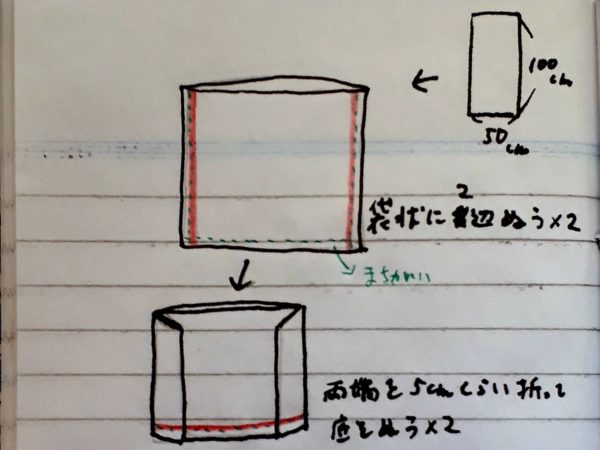 100cm
50cm
袋状に2辺ぬう×2
まちがい
両端を5cmくらい折って
底をぬう×2